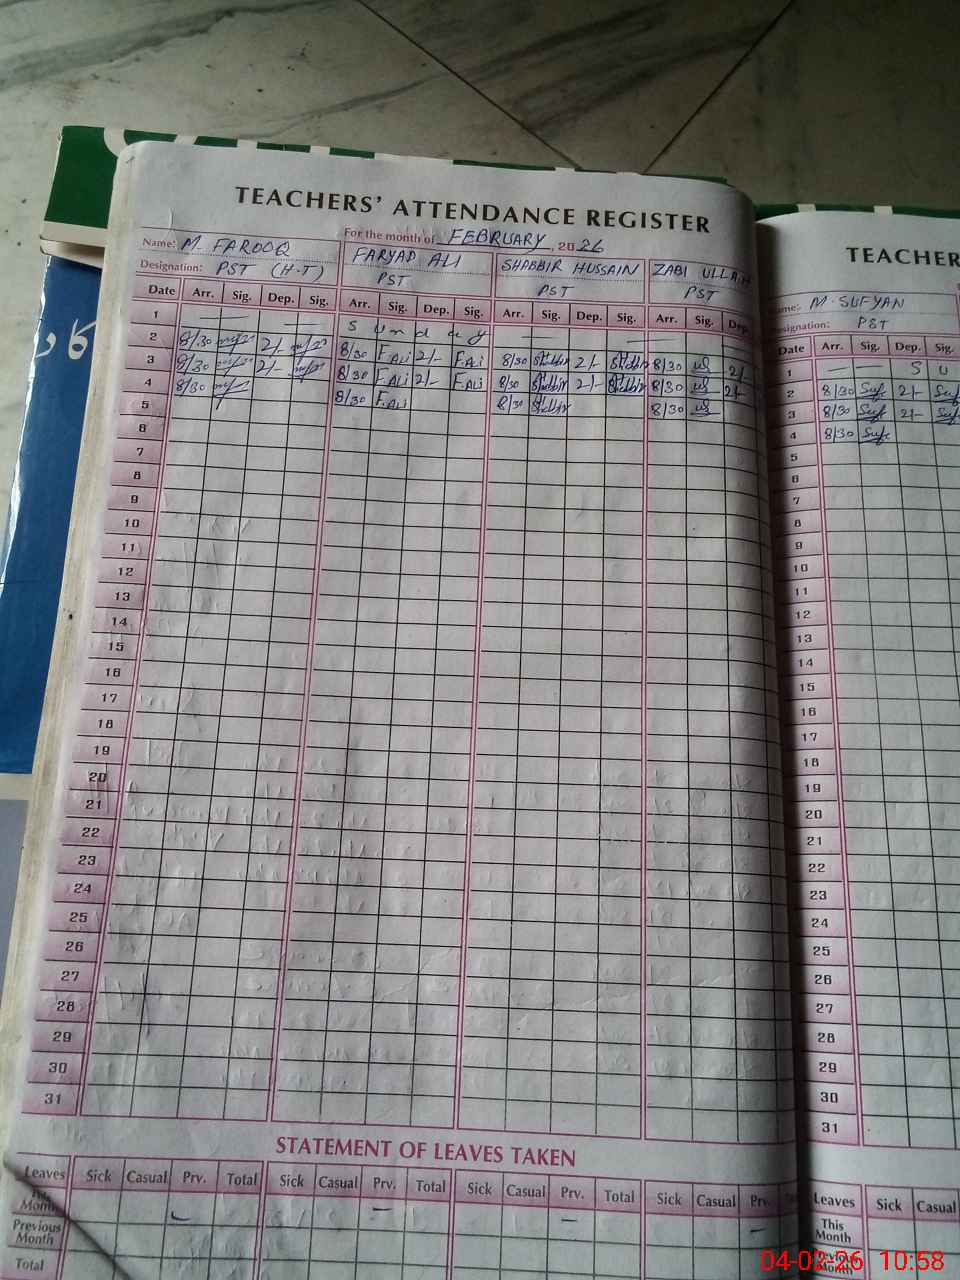 TEACHERS' ATTENDANCE REGISTER
For the month of FEBRUARY, 2026
Name: M. FAROOQ FARYAD ALI SHABBIR HUSSAIN ZABI ULLAH
Designation: PST (H-T) PST PST PST
Date Arr. Sig. Dep. Sig. Arr. Sig. Dep. Sig. Arr. Sig. Dep. Sig. Arr. Sig. Dep.
1 — — S u n d a y — —
2 8/30 2/- 8/30 F.Ali 2/- F.Ali 8/30 Shabbir 2/- Shabbir 8/30 2/-
3 8/30 2/- 8/30 F.Ali 2/- F.Ali 8/30 Shabbir 2/- Shabbir 8/30 2/-
4 8/30 8/30 F.Ali 8/30 Shabbir 8/30
5
6
7
8
9
10
11
12
13
14
15
16
17
18
19
20
21
22
23
24
25
26
27
28
29
30
31
STATEMENT OF LEAVES TAKEN
Leaves Sick Casual Prv. Total Sick Casual Prv. Total Sick Casual Prv. Total Sick Casual Prv.
This Month
Previous Month
Total
TEACHER
Name: M. SUFYAN
Designation: PST
Date Arr. Sig. Dep. Sig.
1 — — S U
2 8/30 Suf 2/- Suf
3 8/30 Suf 2/- Suf
4 8/30 Suf
5
6
7
8
9
10
11
12
13
14
15
16
17
18
19
20
21
22
23
24
25
26
27
28
29
30
31
Leaves Sick Casual
This Month
Previous Month
04-02-26 10:58